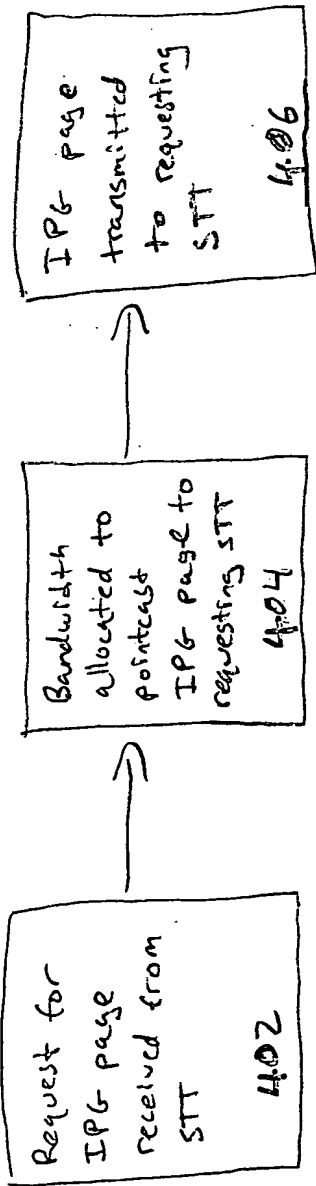 Request for
IPG page
received from
STT
402
Bandwidth
allocated to
pointcast
IPG page to
requesting STT
404
IPG page
transmitted
to requesting
STT
406